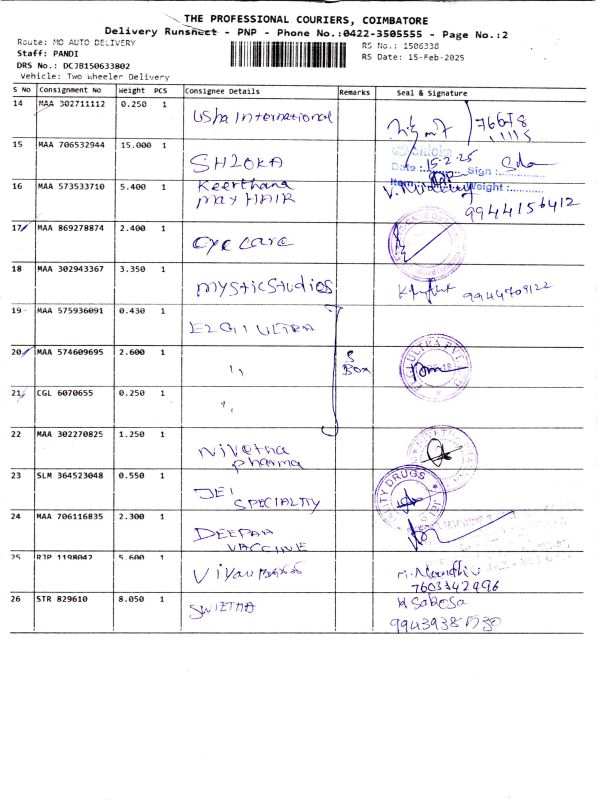 THE PROFESSIONAL COURIERS, COIMBATORE
Delivery Runsheet - PNP - Phone No.:0422-3505555 - Page No.:2
Route: MC AUTO DELIVERY
Staff: PANDI
DRS No.: DCJB150633802
Vehicle: Two Wheeler Delivery
RS No.: 1506338
RS Date: 15-Feb-2025
S No Consignment No Weight PCS Consignee Details Remarks Seal & Signature
14 MAA 302711112 0.250 1 Usha International
15 MAA 706532944 15.000 1 SHLOKA 15-2-25
Date : Sign :
16 MAA 573533710 5.400 1 Keerthana
max HAIR
Weight :
9944156412
17 MAA 869278874 2.400 1 eye care
18 MAA 302943367 3.350 1 mystic Studios
19 MAA 575936091 0.430 1 ELGI ULTRA
20 MAA 574609695 2.600 1 " Box
21 CGL 6070655 0.250 1 "
22 MAA 302270825 1.250 1 Nivetha
pharma
23 SLM 364523048 0.550 1 JEI
SPECIALITY
24 MAA 706116835 2.300 1 DEEPAA
VACCINE
25 RJP 1198042 5.600 1
7603342496
26 STR 829610 8.050 1 SWETHA